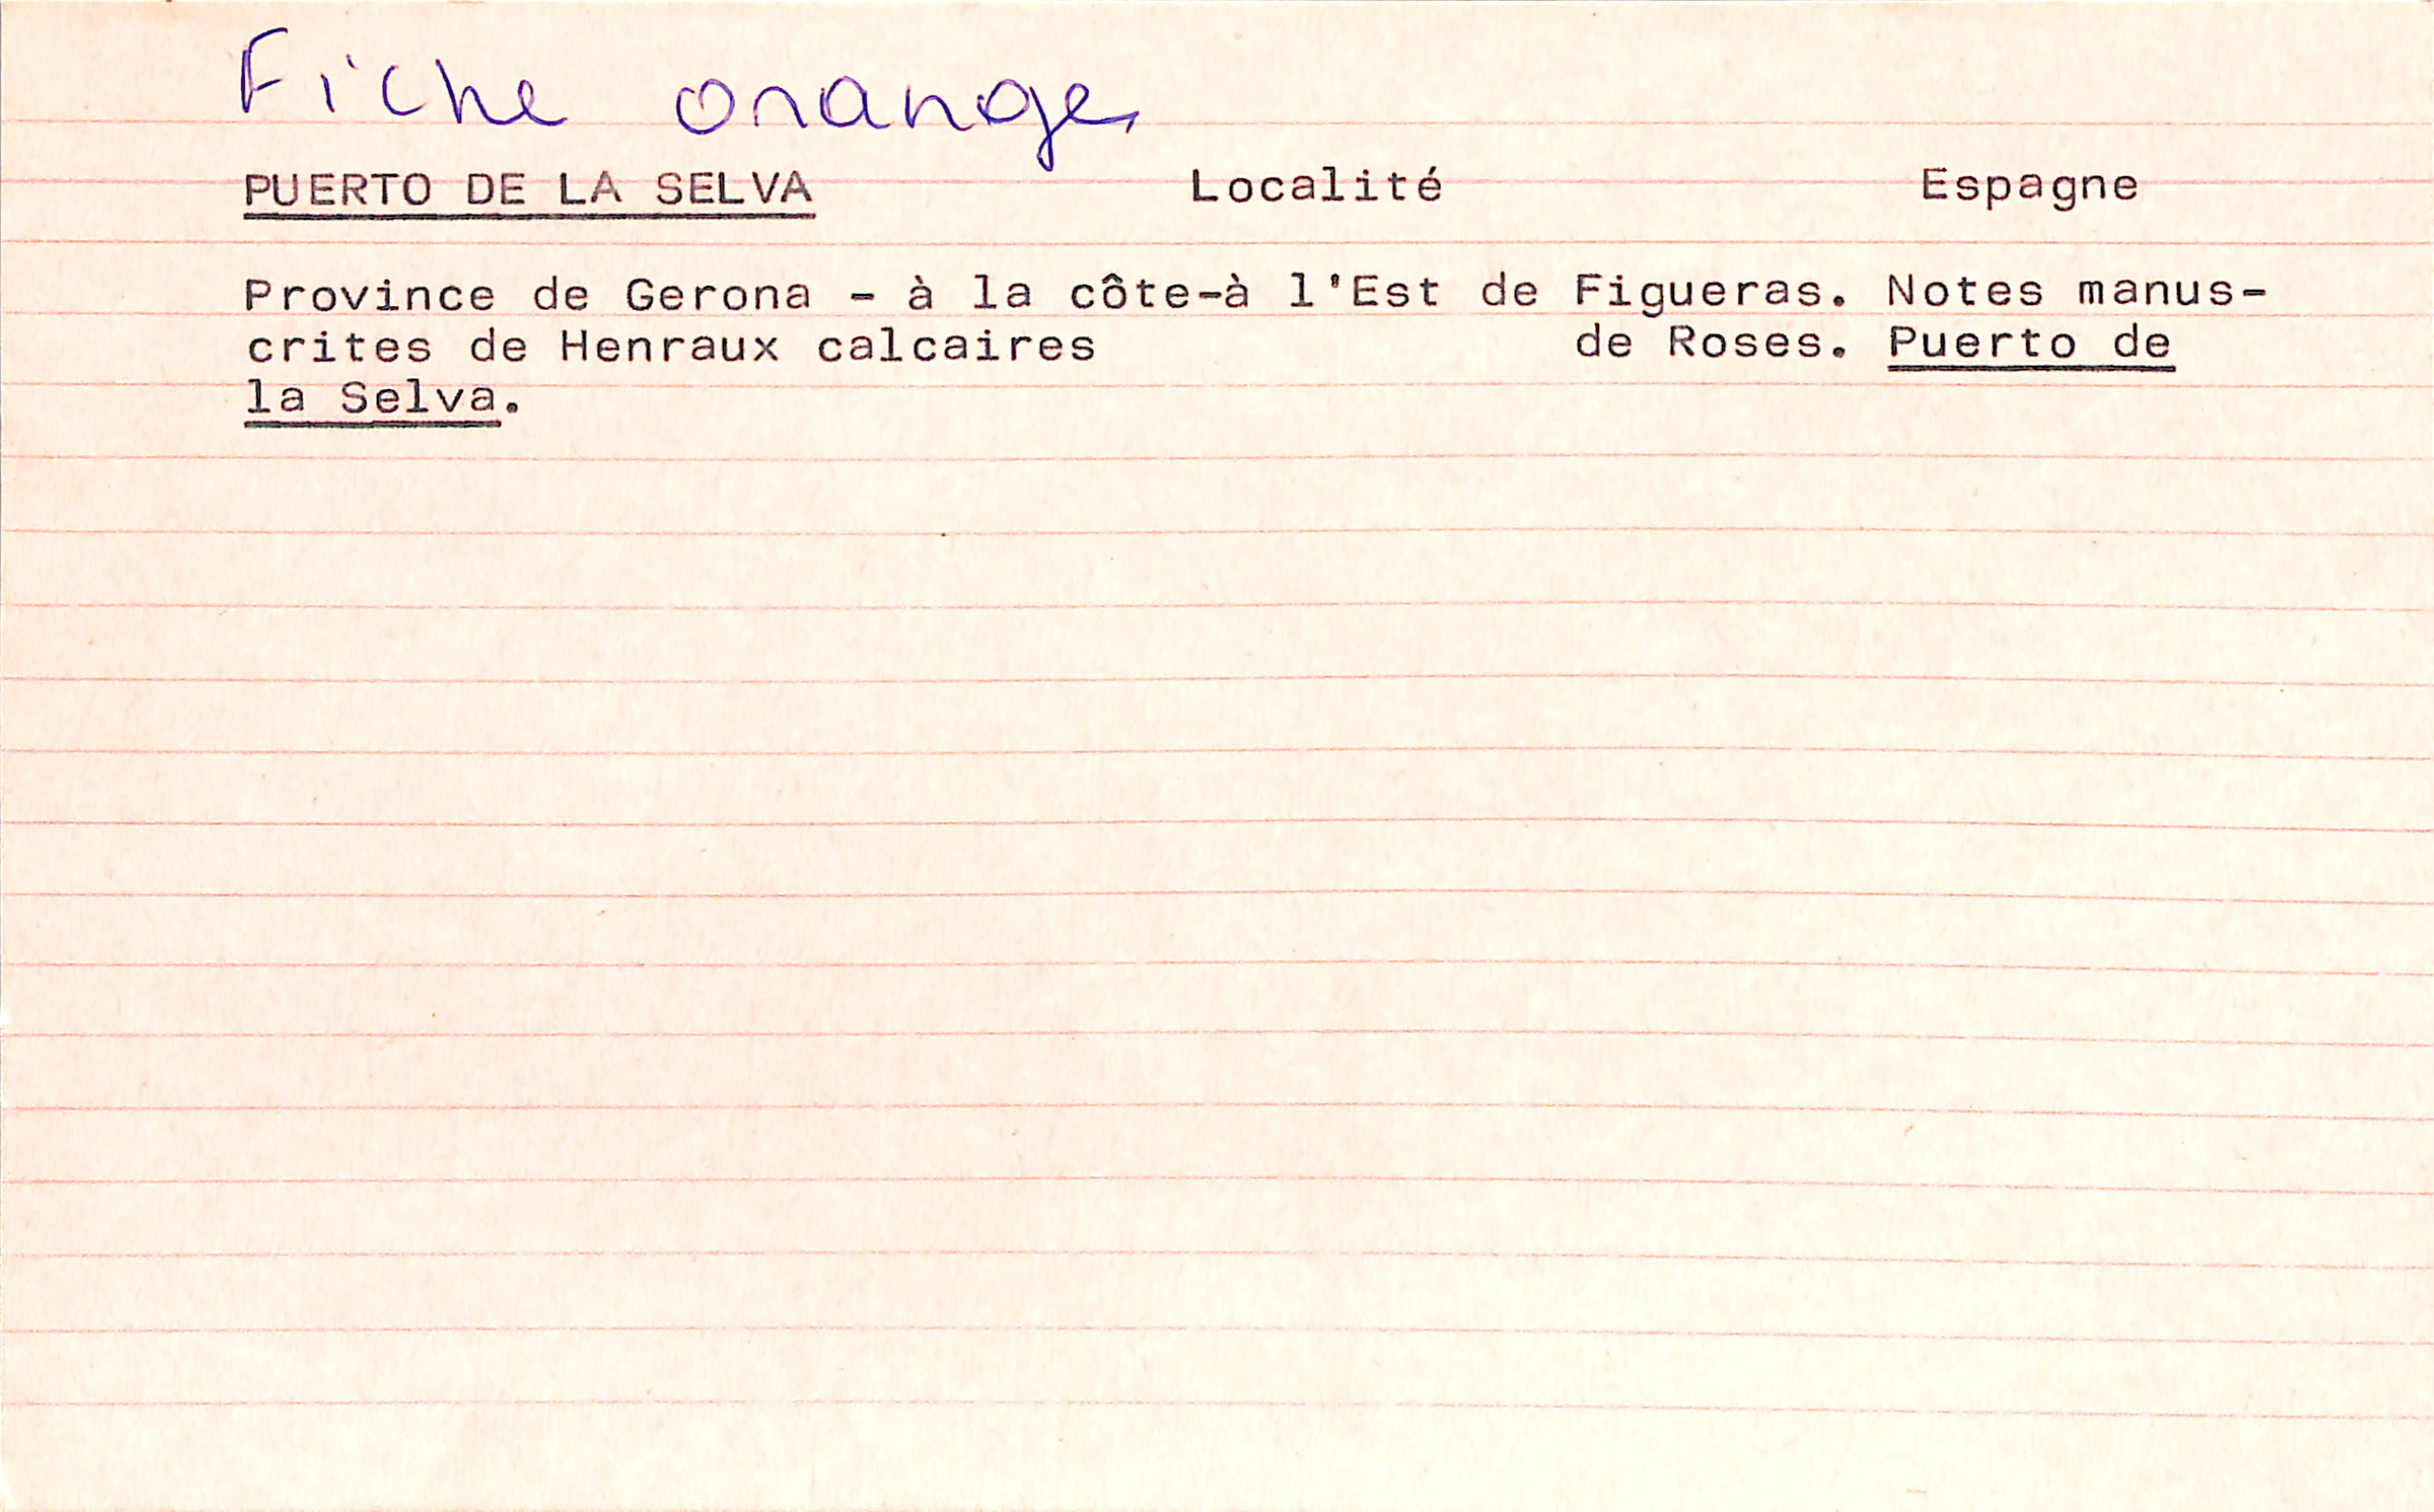 Fiche orange
PUERTO DE LA SELVA Localité Espagne
Province de Gerona - à la côte-à l'Est de Figueras. Notes manus-
crites de Henraux calcaires de Roses. Puerto de
la Selva.